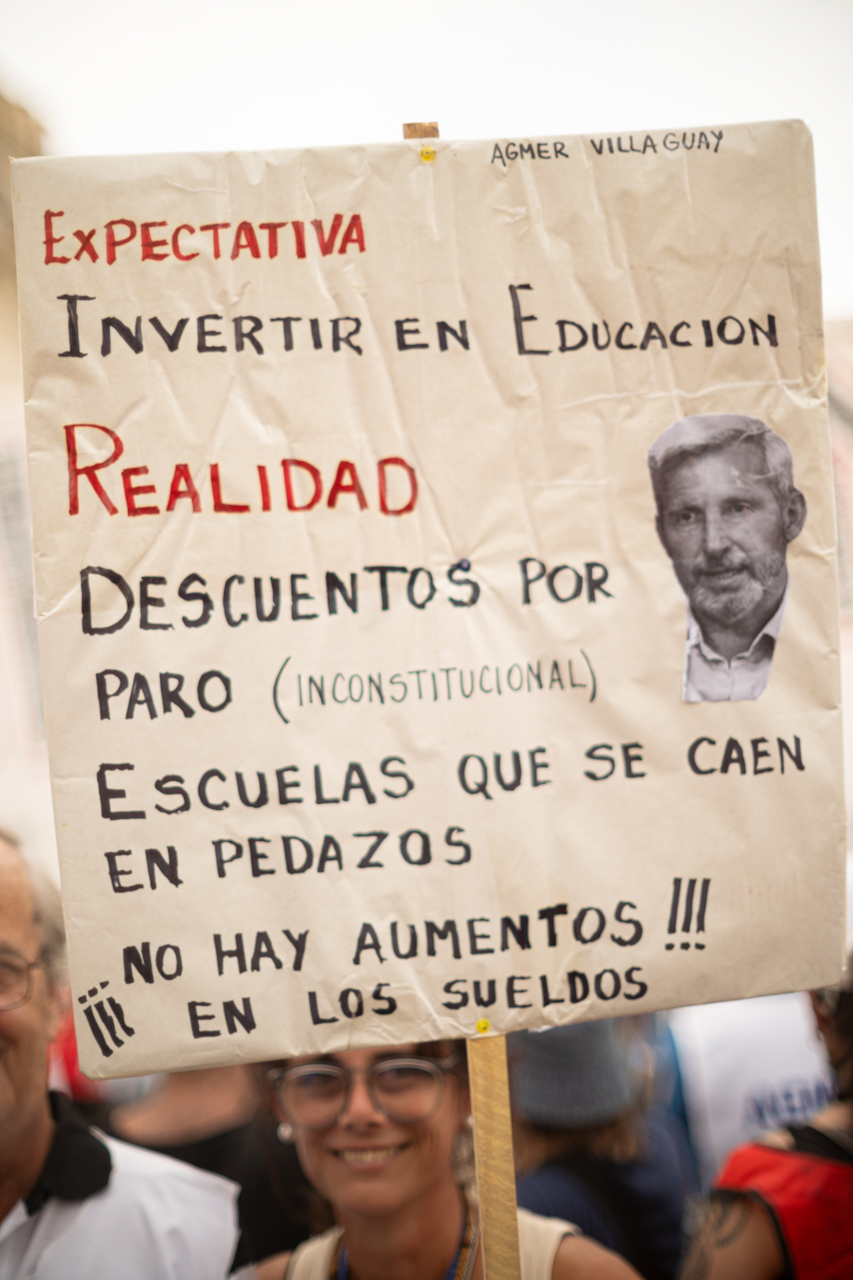 AGMER VILLAGUAY
EXPECTATIVA
INVERTIR EN EDUCACION
REALIDAD
DESCUENTOS POR
PARO (INCONSTITUCIONAL)
ESCUELAS QUE SE CAEN
EN PEDAZOS
NO HAY AUMENTOS !!!
¡¡¡ EN LOS SUELDOS